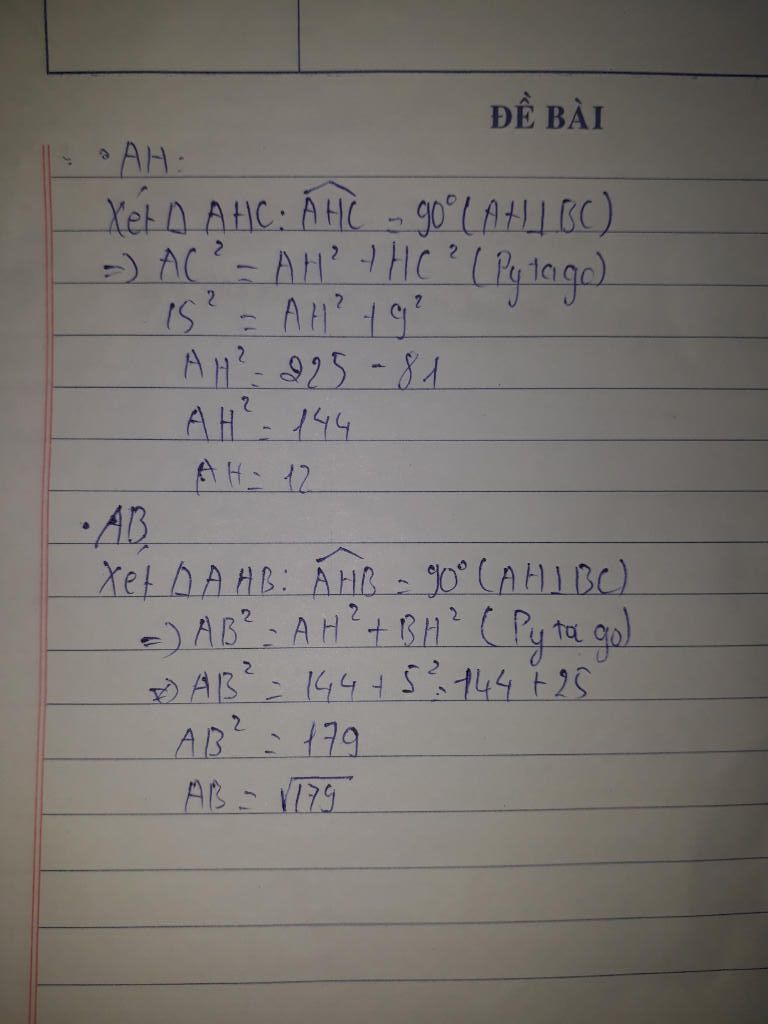 ĐỀ BÀI
• AH:
Xét Δ AHC: \widehat{AHC} = 90° (AH⊥BC)
=) AC² = AH² + HC² (Pytago)
15² = AH² + 9²
AH² = 225 - 81
AH² = 144
AH = 12
• AB
Xét Δ AHB: \widehat{AHB} = 90° (AH⊥BC)
=) AB² = AH² + BH² (Pytago)
=) AB² = 144 + 5² = 144 + 25
AB² = 179
AB = √179